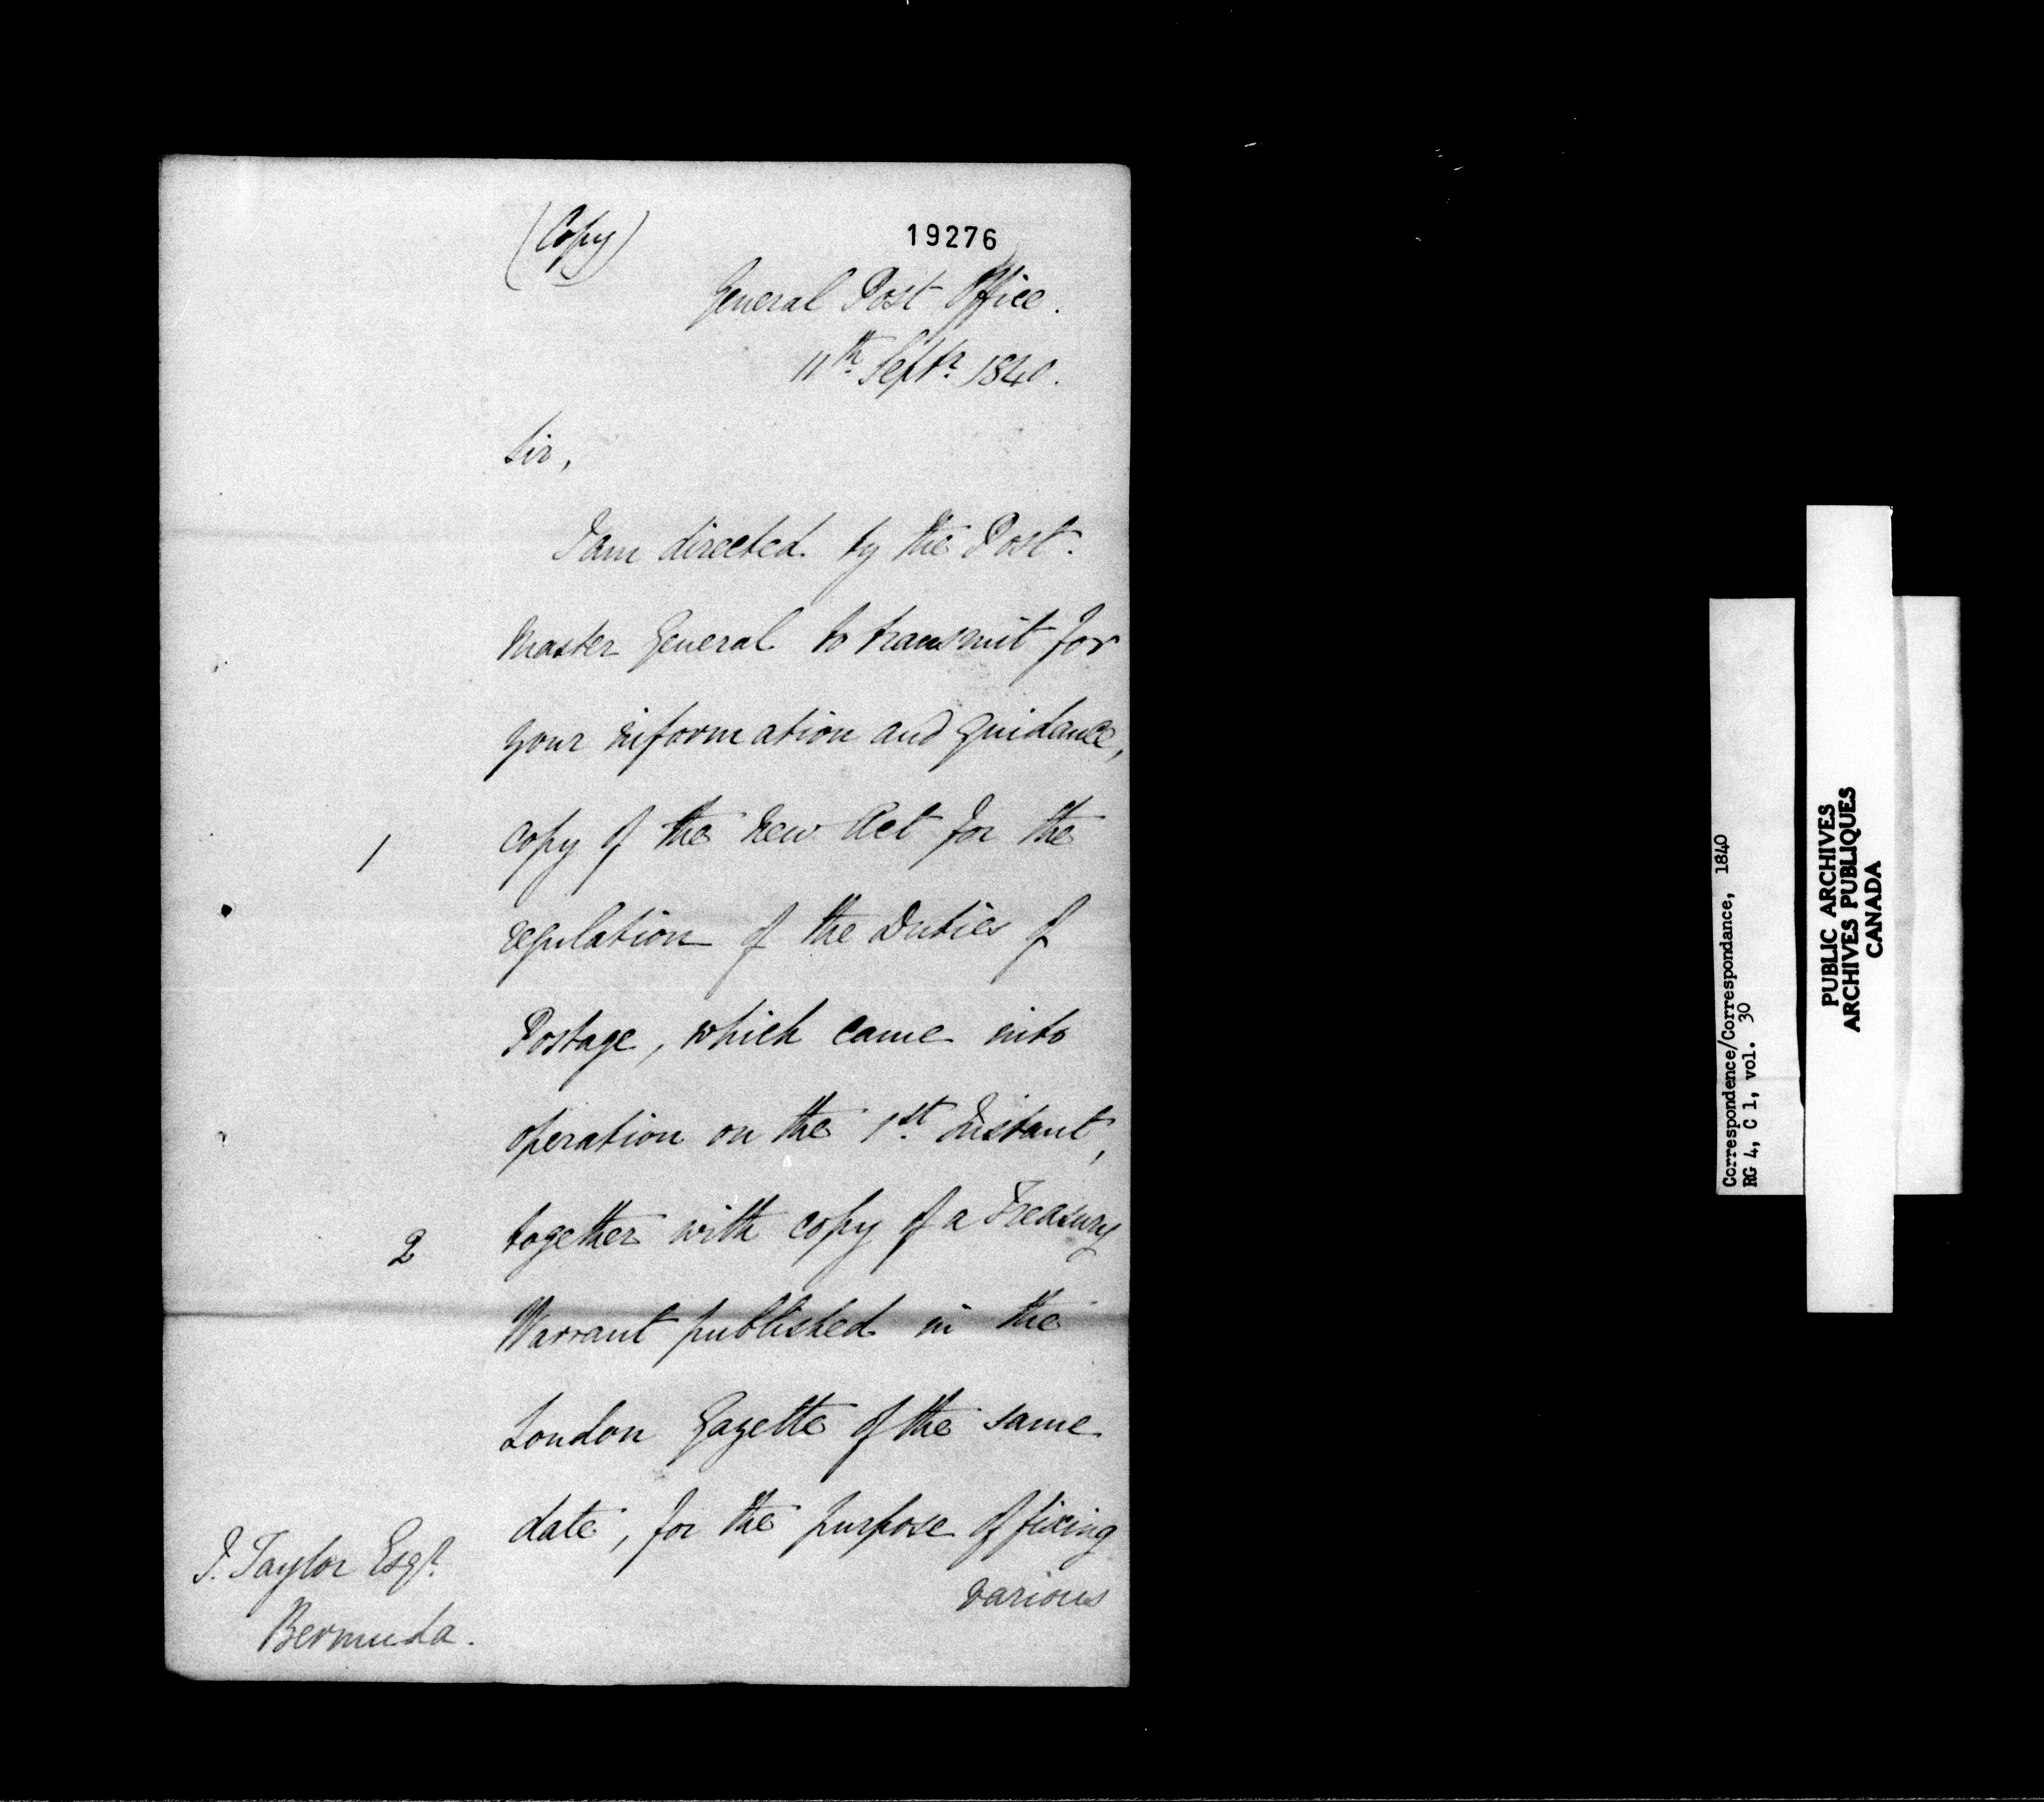 (Copy)
19276
General Post Office.
11th Septr. 1840.
Sir,
I am directed by the Post-
Master General to transmit for
your information and guidance,
1 copy of the new Act for the
regulation of the Duties of
Postage, which came into
operation on the 1st Instant,
2 together with copy of a Treasury
Warrant published in the
London Gazette of the same
date, for the purpose of fixing
various
J. Taylor Esqr.
Bermuda.
Correspondence/Correspondance, 1840
RG 4, C 1, vol. 30
PUBLIC ARCHIVES
ARCHIVES PUBLIQUES
CANADA